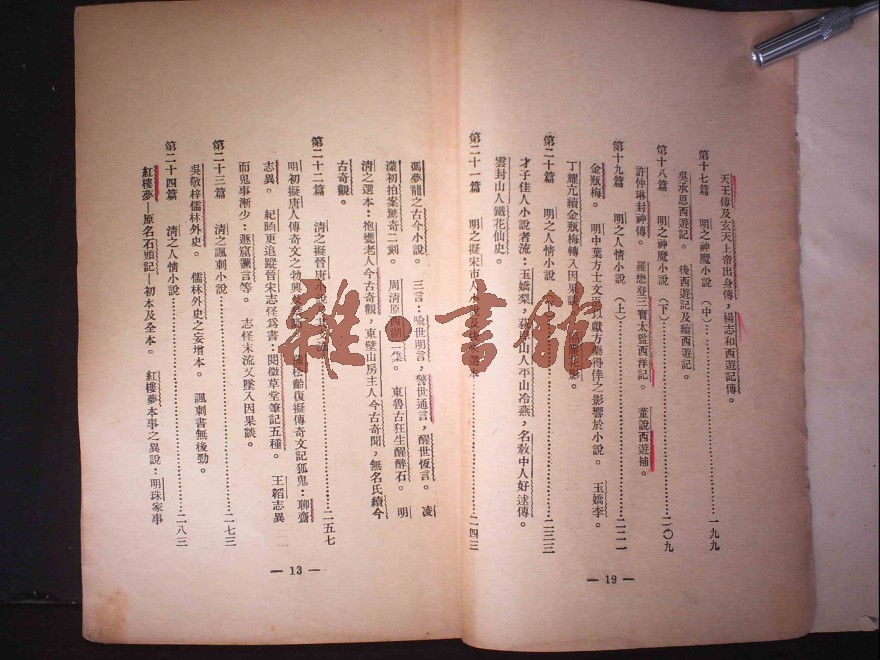 天王傳及玄天上帝出身傳，楊志和西遊記傳。
第十七篇 明之神魔小說（中）……一九九
吳承恩西遊記。 後西遊記及續西遊記。
第十八篇 明之神魔小說（下）……二〇九
許仲琳封神傳。 羅懋登三寶太監西洋記。 董說西遊補。
第十九篇 明之人情小說（上）……二二一
金瓶梅。 明中葉方士文臣以獻方藥得倖之影響於小說。 玉嬌李。
丁耀亢續金瓶梅轉入因果談
第二十篇 明之人情小說……二三三
才子佳人小說者流：玉嬌梨，荻岸山人平山冷燕，名教中人好逑傳。
雲封山人鐵花仙史。
第二十一篇 明之擬宋市人小說及……二四三
馮夢龍之古今小說。 三言：喻世明言，警世通言，醒世恆言。 凌
濛初拍案驚奇二刻。 周清原西湖二集。 東魯古狂生醒醉石。 明
清之選本：抱甕老人今古奇觀，東壁山房主人今古奇聞，無名氏續今
古奇觀。
第二十二篇 清之擬晉唐小說……二五七
明初擬唐人傳奇文之勃興 松齡復擬傳奇文記狐鬼：聊齋
志異。 紀昀更追蹤晉宋志怪爲書：閱微草堂筆記五種。 王韜志異
而鬼事漸少：遯窟讕言等。 志怪末流又墜入因果談。
第二十三篇 清之諷刺小說……二七三
吳敬梓儒林外史。 儒林外史之妄增本。 諷刺書無後勁。
第二十四篇 清之人情小說……二八三
紅樓夢—原名石頭記—初本及全本。 紅樓夢本事之異說：明珠家事
— 12 —
— 13 —
雜·書館